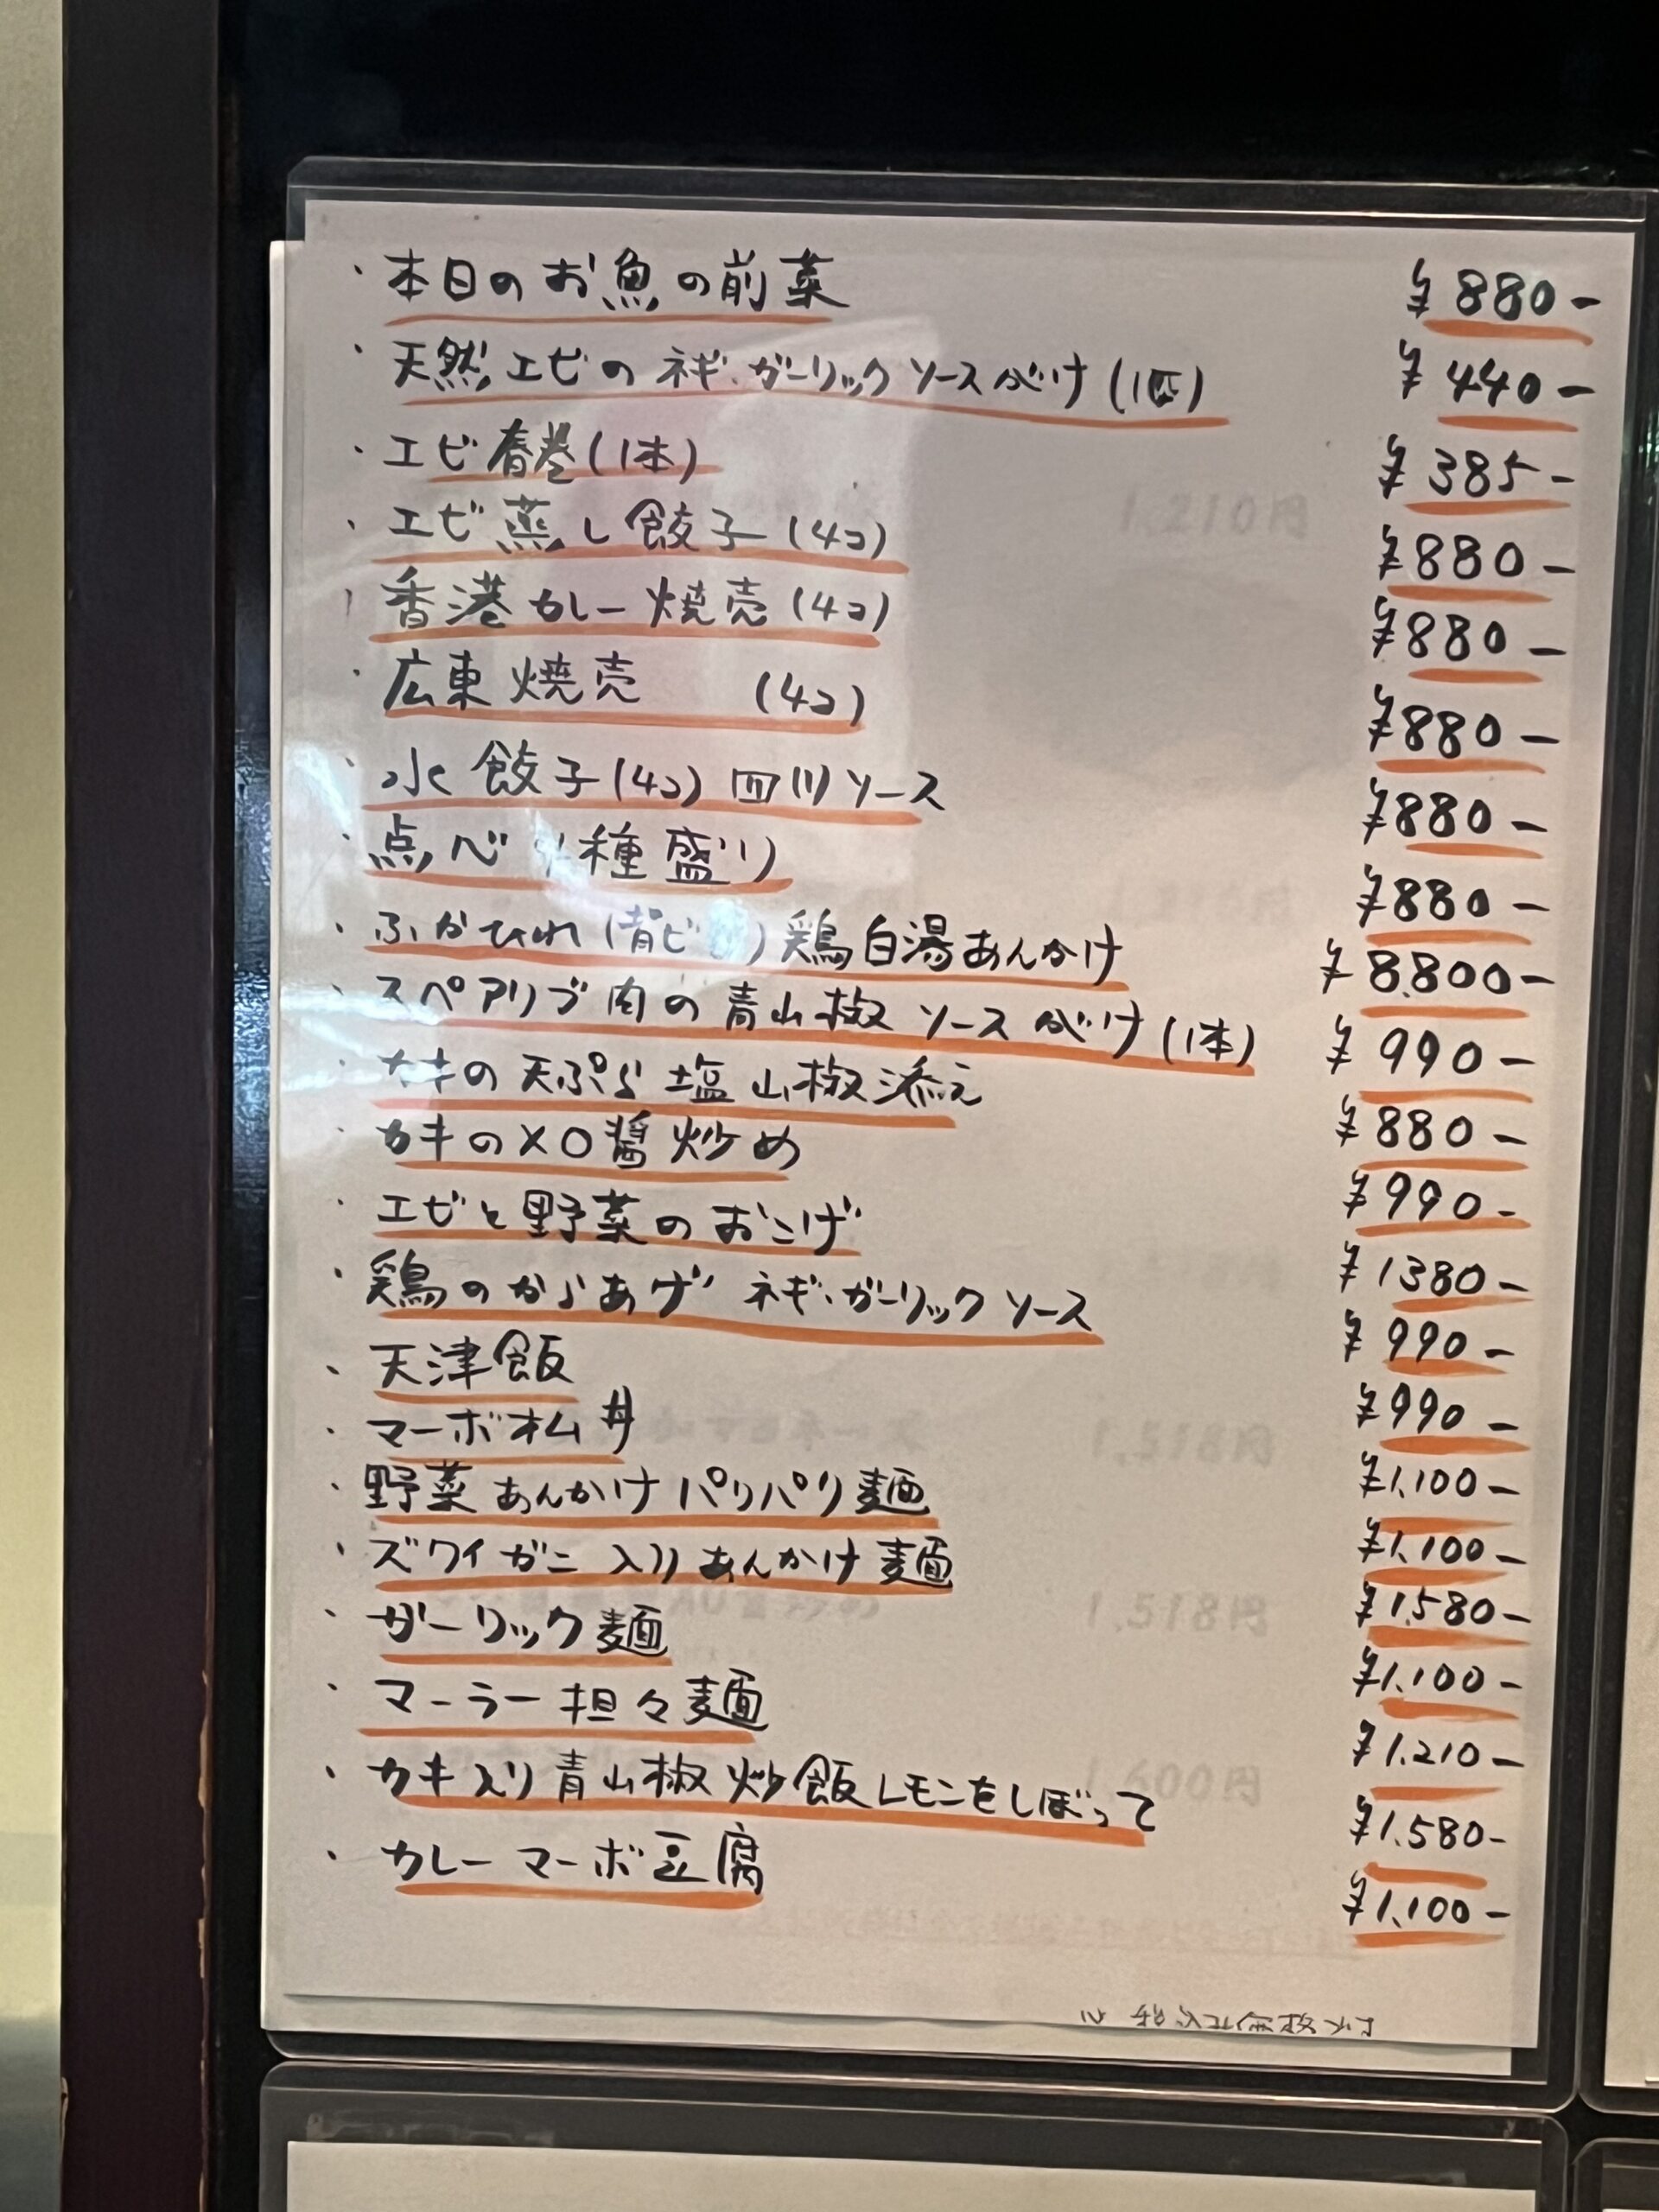 ・本日のお魚の前菜 ¥880-
・天然エビのネギ・ガーリックソースがけ(1匹) ¥440-
・エビ春巻(1本) ¥385-
・エビ蒸し餃子(4コ) ¥880-
・香港カレー焼売(4コ) ¥880-
・広東焼売 (4コ) ¥880-
・水餃子(4コ)四川ソース ¥880-
・点心4種盛り ¥880-
・ふかひれ(背ビレ)鶏白湯あんかけ ¥8.800-
・スペアリブ肉の青山椒ソースがけ(1本) ¥990-
・カキの天ぷら塩山椒添え ¥880-
・カキのXO醤炒め ¥990-
・エビと野菜のおこげ ¥1380-
・鶏のからあげ ネギ・ガーリックソース ¥990-
・天津飯 ¥990-
・マーボオム丼 ¥1.100-
・野菜あんかけパリパリ麺 ¥1.100-
・ズワイガニ入りあんかけ麺 ¥1.580-
・ガーリック麺 ¥1.100-
・マーラー担々麺 ¥1.210-
・カキ入り青山椒炒飯レモンをしぼって ¥1.580-
・カレーマーボ豆腐 ¥1.100-
1.210円
1.518円
1.600円